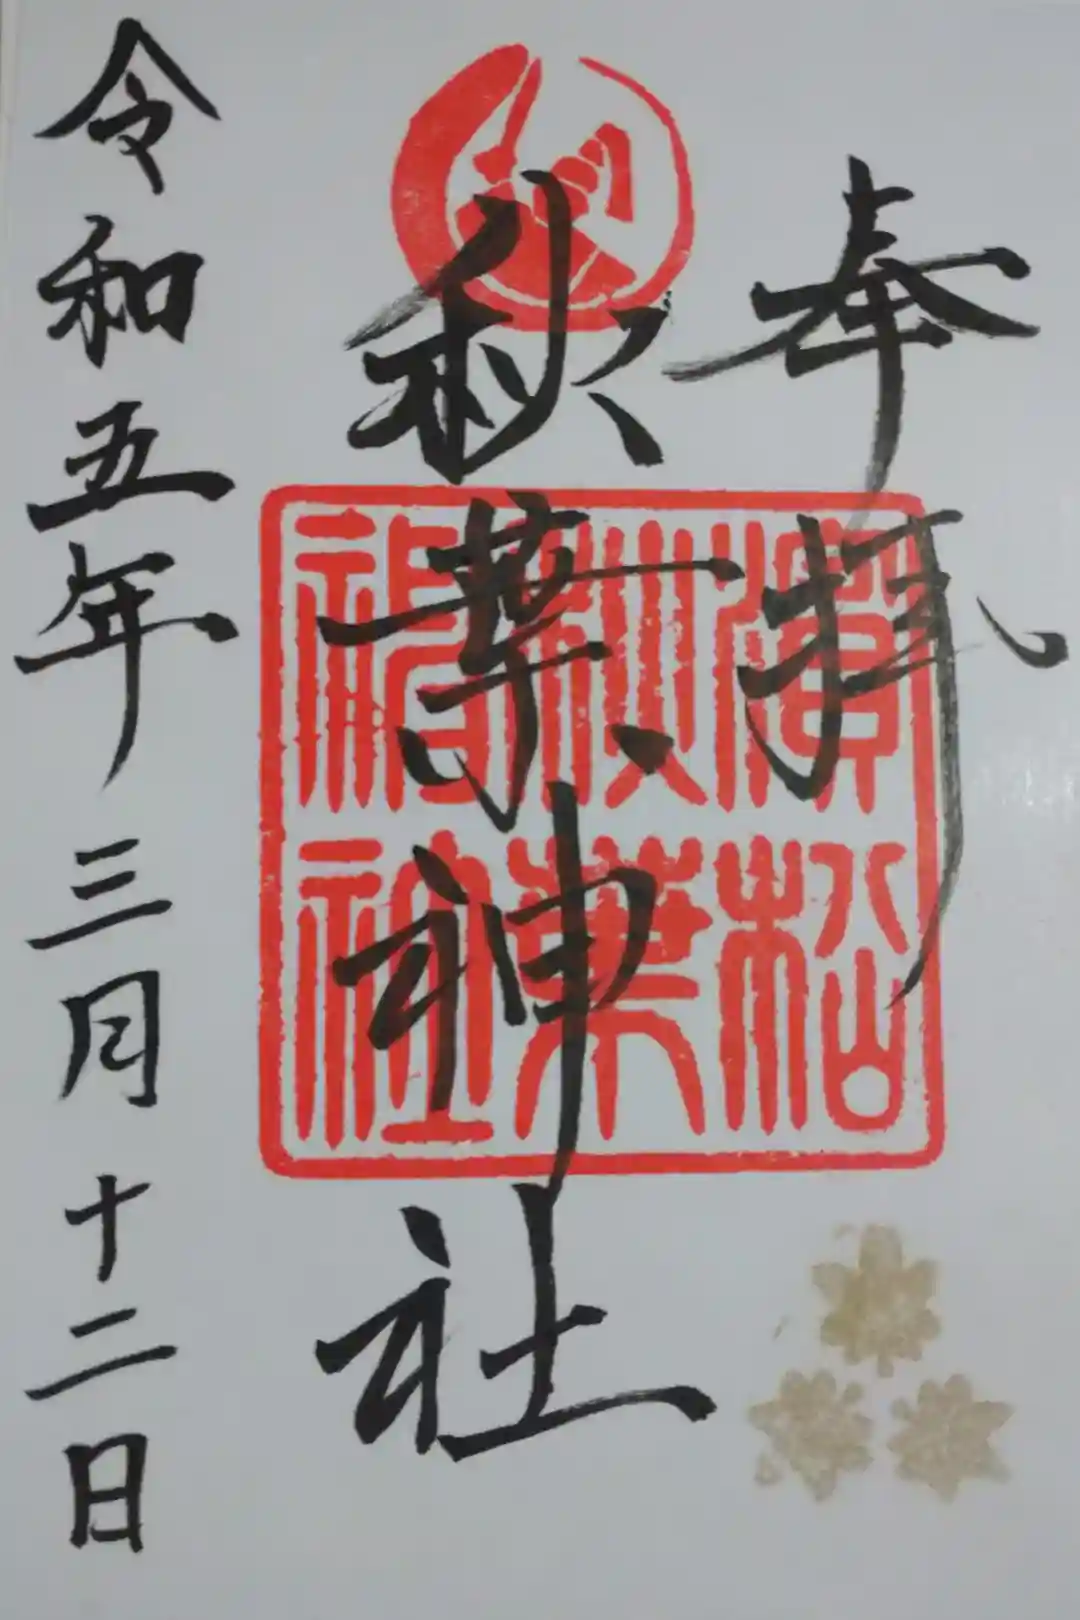 奉拝
秋葉神社
濱松
秋葉
神社
令和五年三月十二日